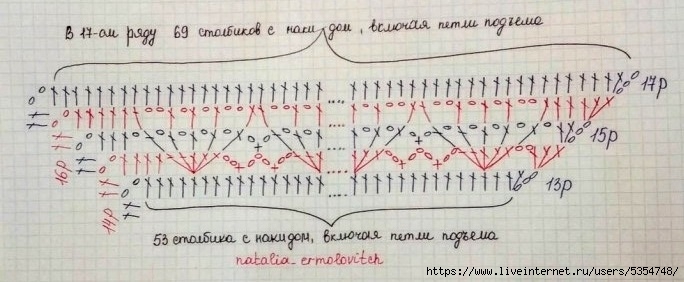 В 17-ом ряду 69 столбиков с накидом, включая петли подъема
17р
16р
15р
14р
13р
53 столбика с накидом, включая петли подъема
natalia_ermolovitch
https://www.liveinternet.ru/users/5354748/